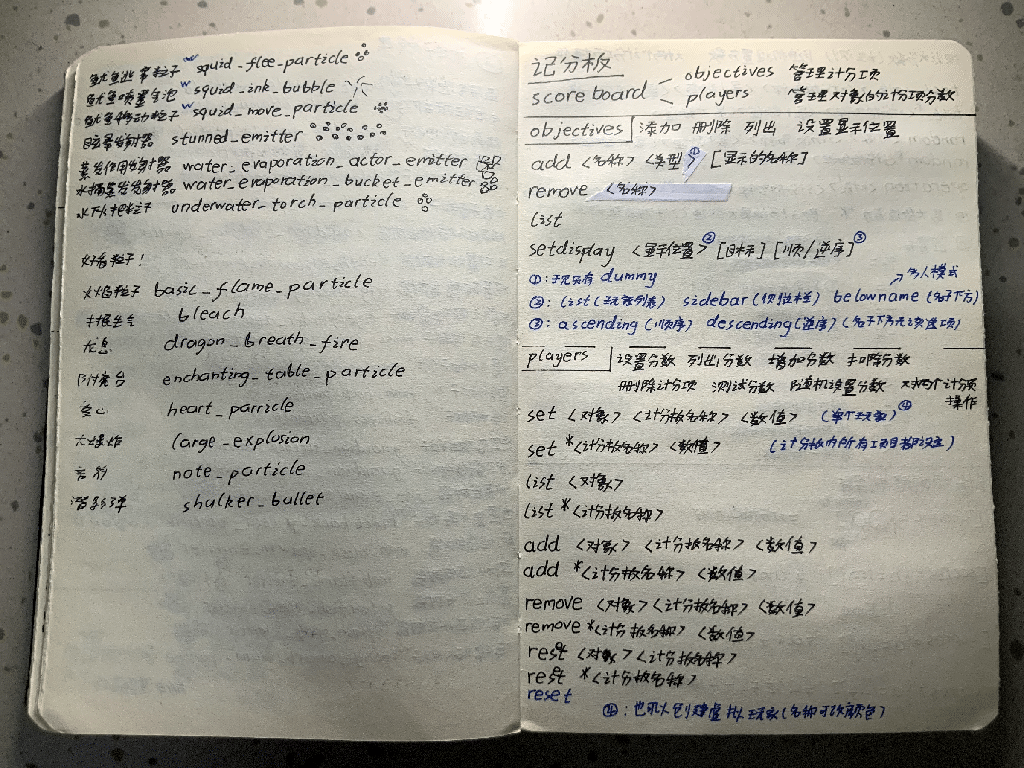 鱿鱼逃窜粒子 w squid_flee_particle
鱿鱼喷墨气泡 w squid_ink_bubble
鱿鱼移动粒子 w squid_move_particle
眩晕发射器 stunned_emitter
蒸发作用发射器 water_evaporation_actor_emitter
水桶蒸发发射器 water_evaporation_bucket_emitter
水下火把粒子 underwater_torch_particle
好看粒子!
火焰粒子 basic_flame_particle
bleach
龙息 dragon_breath_fire
附魔台 enchanting_table_particle
爱心 heart_particle
大爆炸 large_explosion
音符 note_particle
潜影弹 shulker_bullet
记分板
scoreboard objectives 管理计分项
players 管理对象的计分项分数
objectives 添加 删除 列出 设置显示位置
add <名称> <类型>① [显示的名称]
remove <名称>
list
setdisplay <显示位置>② [目标] [顺/逆序]③
①:现只有 dummy
多人模式
②:list(玩家列表) sidebar(侧边栏) belowname(名字下方)
③:ascending(顺序) descending(逆序)(名字下方无该选项)
players 设置分数 列出分数 增加分数 扣除分数
删除计分项 测试分数 随机设置分数 对两个计分项
操作
set <对象> <计分板名称> <数值> (单个玩家)④
set *<计分板名称> <数值> (计分板内所有项目都设定)
list <对象>
list *<计分板名称>
add <对象> <计分板名称> <数值>
add *<计分板名称> <数值>
remove <对象> <计分板名称> <数值>
remove *<计分板名称> <数值>
rest <对象> <计分板名称>
rest *<计分板名称>
reset
④:也可以创建虚拟玩家(名称可改颜色)